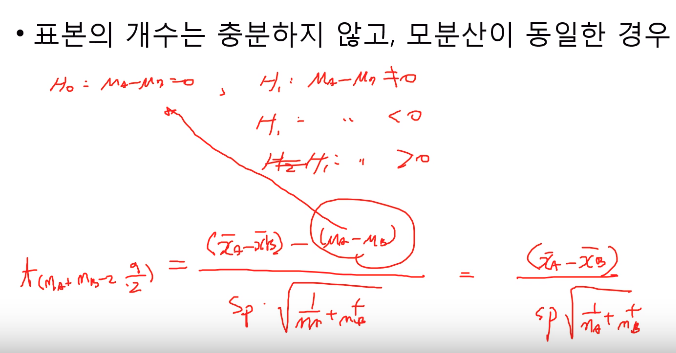 • 표본의 개수는 충분하지 않고, 모분산이 동일한 경우
H₀ : μA-μB=0 , H₁ : μA-μB≠0
H₁ : " <0
H₁ : " >0
t(nA+nB-2, α/2) = (x̄A-x̄B) - (μA-μB) / Sp·√(1/nA + 1/nB) = (x̄A-x̄B) / Sp√(1/nA + 1/nB)